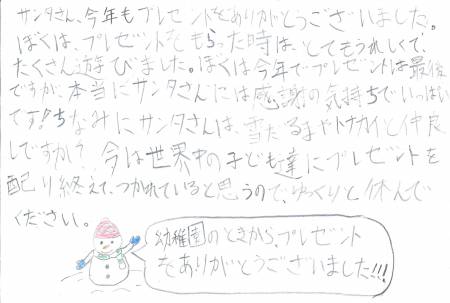 サンタさん、今年もプレゼントをありがとうございました。
ぼくは、プレゼントをもらった時は、とてもうれしくて、
たくさん遊びました。ぼくは今年でプレゼントは最後
ですが、本当にサンタさんには感謝の気持ちでいっぱい
です!ちなみにサンタさんは、雪だるまやトナカイと仲良
しですか?今は世界中の子ども達にプレゼントを
配り終えて、つかれていると思うので、ゆっくりと休んで
ください。
幼稚園のときから、プレゼント
をありがとうございました!!!